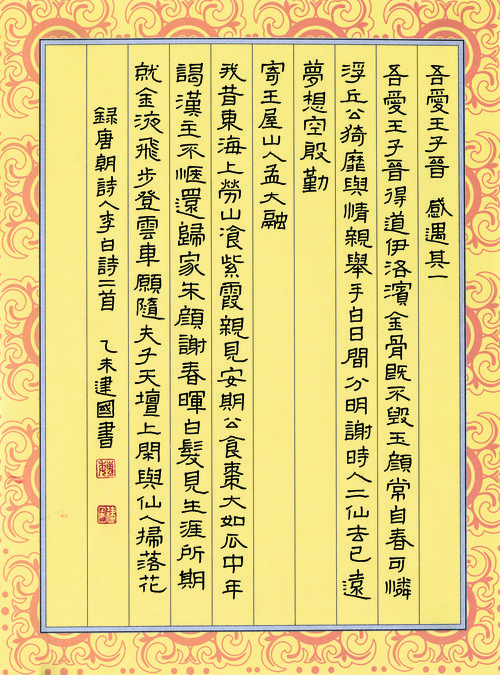 吾愛王子晉 感遇其一
吾愛王子晉得道伊洛濱金骨既不毀玉顏常自春可憐
浮丘公猗靡與情親舉手白日間分明謝時人二仙去已遠
夢想空殷勤
寄王屋山人孟大融
我昔東海上勞山飡紫霞親見安期公食棗大如瓜中年
謁漢主不愜還歸家朱顏謝春暉白髮見生涯所期
就金液飛步登雲車願隨夫子天壇上閑與仙人掃落花
錄唐朝詩人李白詩二首 乙未建國書